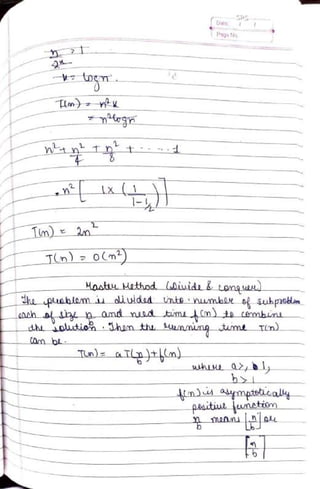 SPS
Date: / /
Page No.
n/2^k > 1
k = logn.
T(n) = n²k
= n²logn
n² + n²/4 + n²/8 + - - - - 1
. n² [ 1 x ( 1 / 1-1/2 ) ]
T(n) = 2n²
T(n) = O(n²)
Master Method (Divide & conquer)
The problem is divided into number of subproblem
each of size n/b and need time f(n) to combine
the solution. Then the running time T(n)
can be.
T(n) = aT(n/b) + f(n)
where a ≥ 1,
b > 1
f(n) is asymptotically
positive function
n/b means ⌊n/b⌋ or
⌈n/b⌉